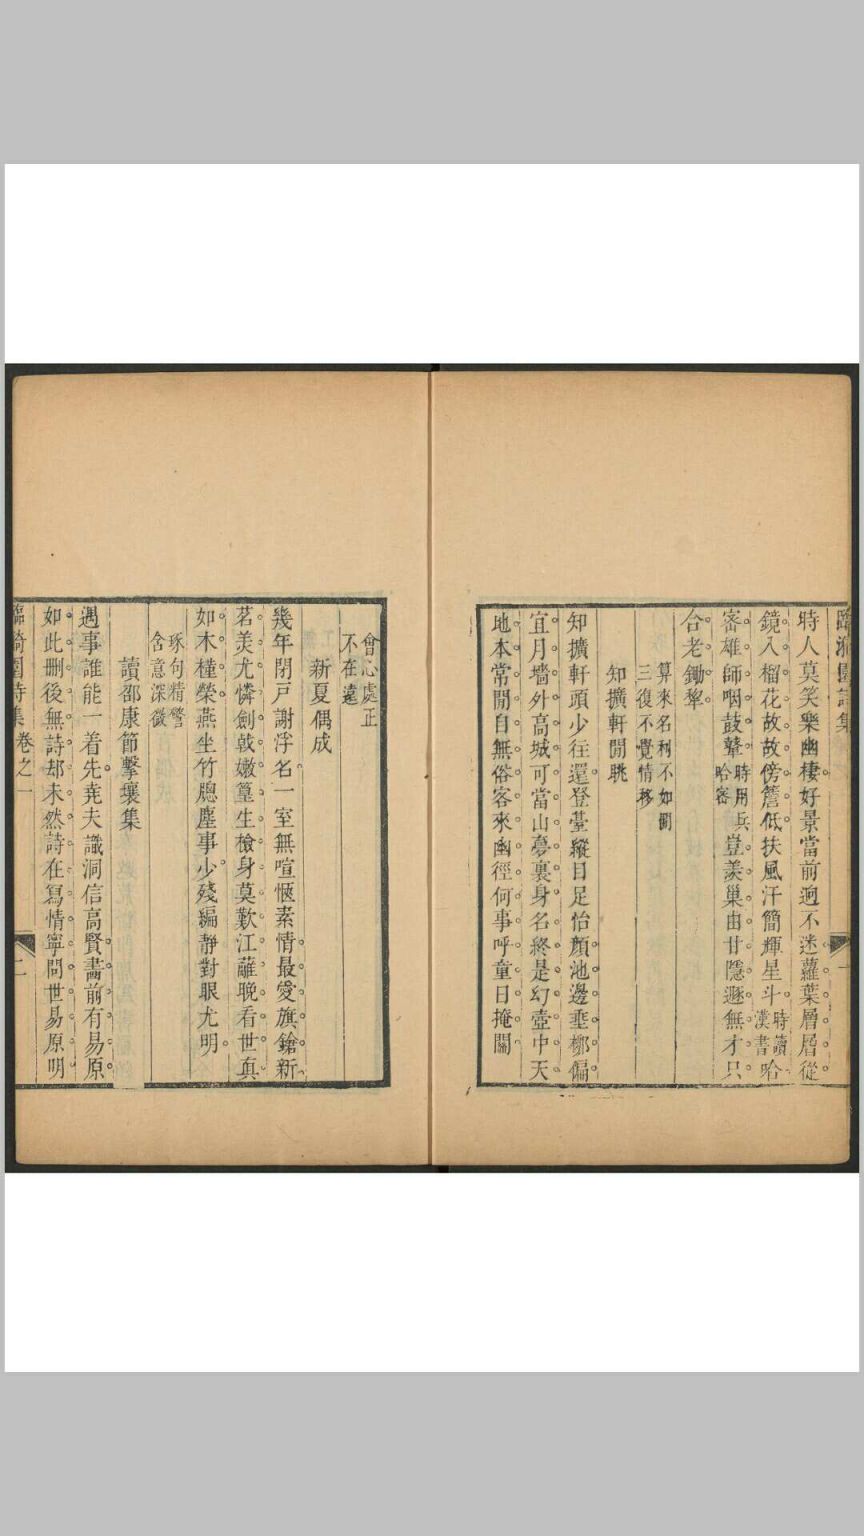 時人莫笑樂幽棲好景當前逈不迷蘿葉層層從
鏡入榴花故故傍簷低扶風汗簡輝星斗時讀漢書哈
密雄師咽鼓鼙時用兵哈密豈羨巢由甘隱遯無才只
合老鋤犂
算來名利不如閒
三復不覺情移
知擴軒閒眺
知擴軒頭少往還登臺縱目足怡顏池邊垂柳偏
宜月墻外高城可當山夢裏身名終是幻壺中天
地本常閒自無俗客來幽徑何事呼童日掩關
會心處正
不在遠
新夏偶成
幾年閉戸謝浮名一室無喧愜素情最愛旗鎗新
茗美尤憐劍戟嫩篁生檢身莫歎江蘺晚看世真
如木槿榮燕坐竹牕塵事少殘編靜對眼尤明
琢句精警
含意深微
讀邵康節擊壤集
遇事誰能一着先堯夫識洞信高賢畵前有易原
如此刪後無詩却未然詩在寫情寧問世易原明
臨漪園詩集卷之一 二